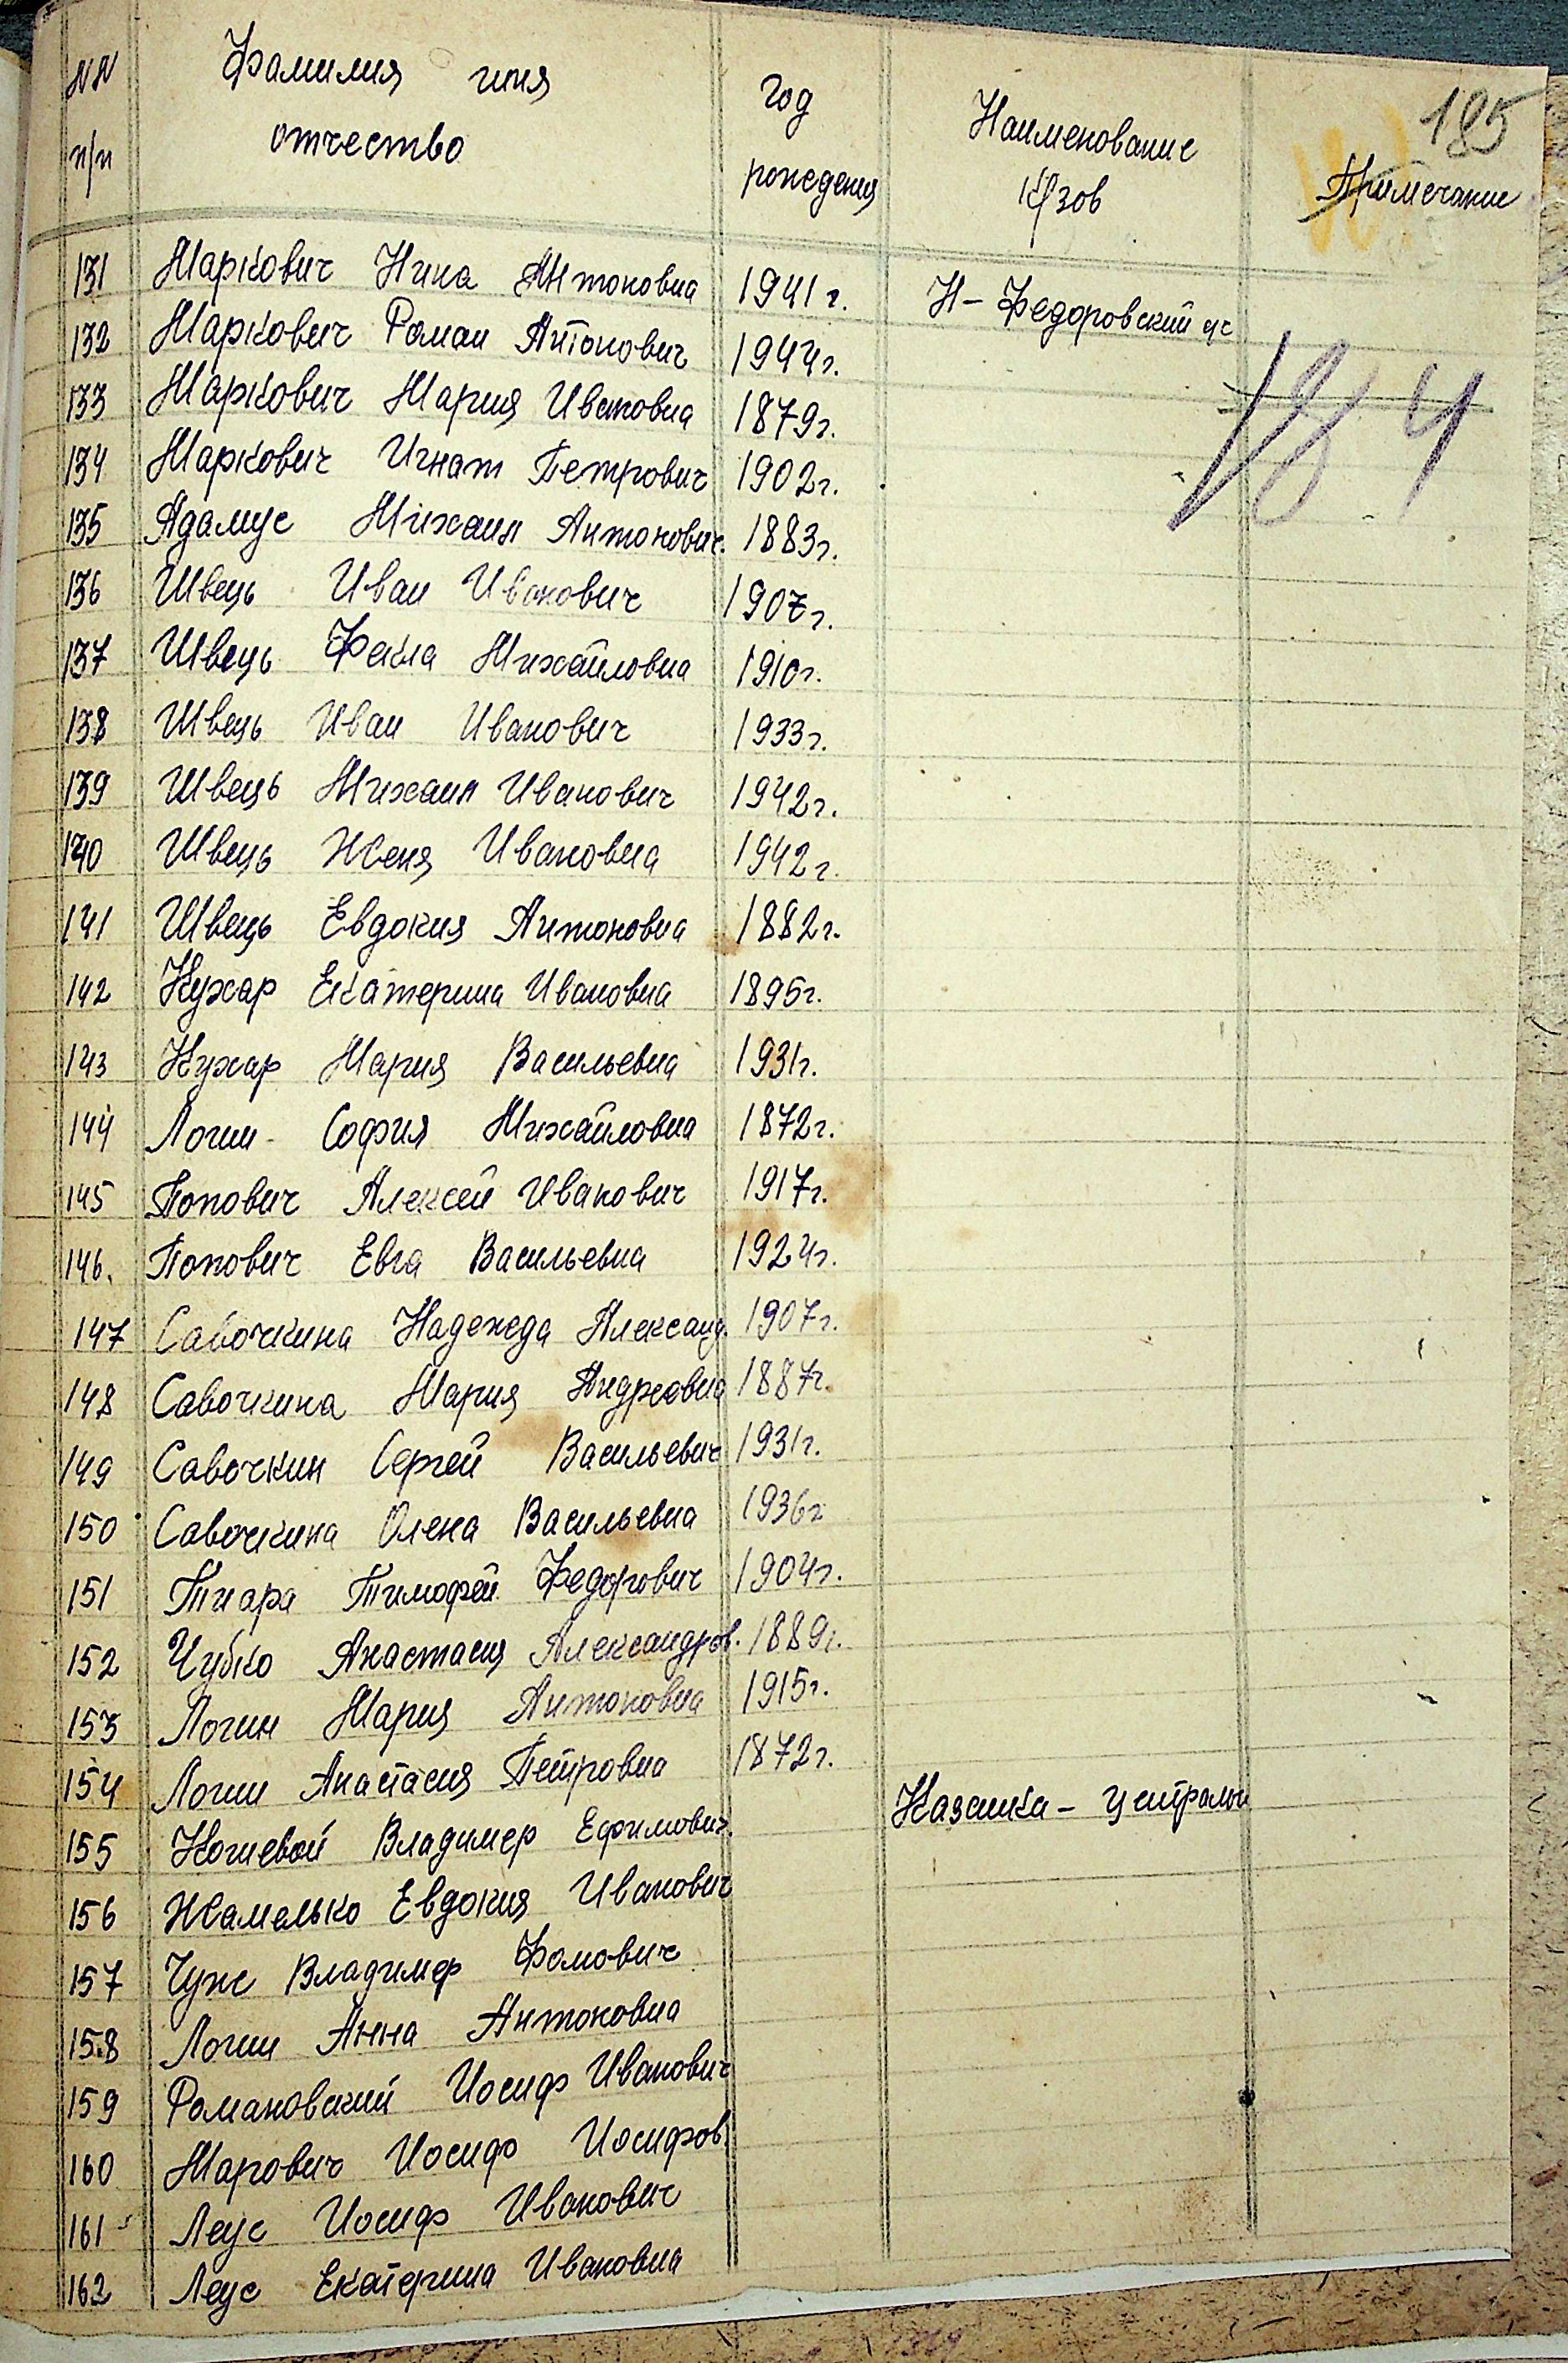 NN п/п Фамилия имя отчество Год рождения Наименование к/зов Примечание
185
131 Маркович Нина Антоновна 1941 г. Н-Федоровский ус
132 Маркович Роман Антонович 1944г.
184
133 Маркович Мария Ивановна 1879г.
134 Маркович Игнат Петрович 1902г.
135 Адамус Михаил Антонович. 1883г.
136 Швець Иван Иванович 1907г.
137 Швець Фекла Михайловна 1910г.
138 Швець Иван Иванович 1933г.
139 Швець Михаил Иванович 1942г.
140 Швець Женя Ивановна 1942г.
141 Швець Евдокия Антоновна 1882г.
142 Кухар Екатерина Ивановна 1895г.
143 Кухар Мария Васильевна 1931г.
144 Логин София Михайловна 1872г.
145 Попович Алексей Иванович 1917г.
146. Попович Евга Васильевна 1924г.
147 Савочкина Надежда Александ. 1907г.
148 Савочкина Мария Андреевна 1887г.
149 Савочкин Сергей Васильевич 1931г.
150 Савочкина Олена Васильевна 1936г
151 Тиара Тимофей Федорович 1904г.
152 Чубко Анастасия Александров. 1889г.
153 Логин Мария Антоновна 1915г.
154 Логин Анастасия Петровна 1872г.
155 Кошевой Владимер Ефимович. Казанка-
156 Жамелько Евдокия Иванович
157 Чуже Владимер Фомович
158 Логин Анна Антоновна
159 Романовский Иосиф Иванович
160 Марович Иосиф Иосифов.
161 Леус Иосиф Иванович
162 Леус Екатерина Ивановна